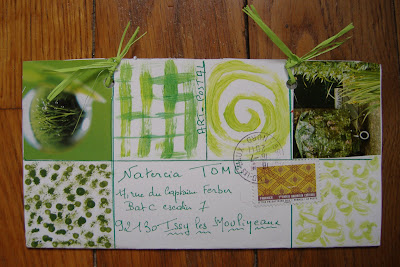 ART-POSTAL
Natercia TOME
11, rue du Capitaine Ferber
Bat C escalier 7
92130 Issy les Moulineaux